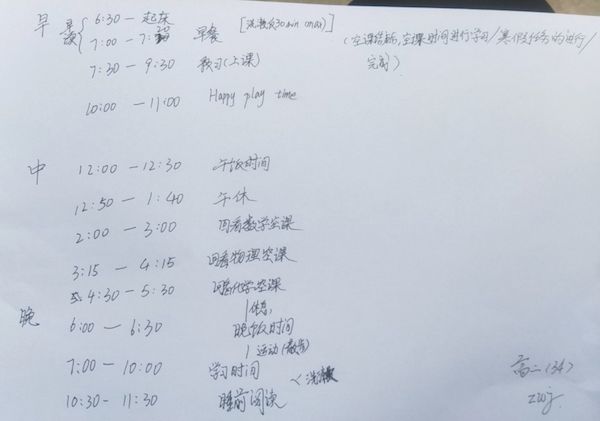 早 晨 6:30 — 起床
7:00 — 7: 早餐 [洗漱 30min max]
7:30 — 9:30 (上课) (空课 时间进行学习/寒假任务的进行/完善)
10:00 — 11:00 Happy play time
中 12:00 — 12:30 午饭时间
12:50 — 1:40 午休
2:00 — 3:00 回看数学空课
3:15 — 4:15 回看物理空课
4:30 — 5:30 回看化学空课
休息
晚 6:00 — 6:30 晚饭时间
运动(散步)
7:00 — 10:00 学习时间
< 洗漱
10:30 — 11:30 睡前阅读
高二(34)